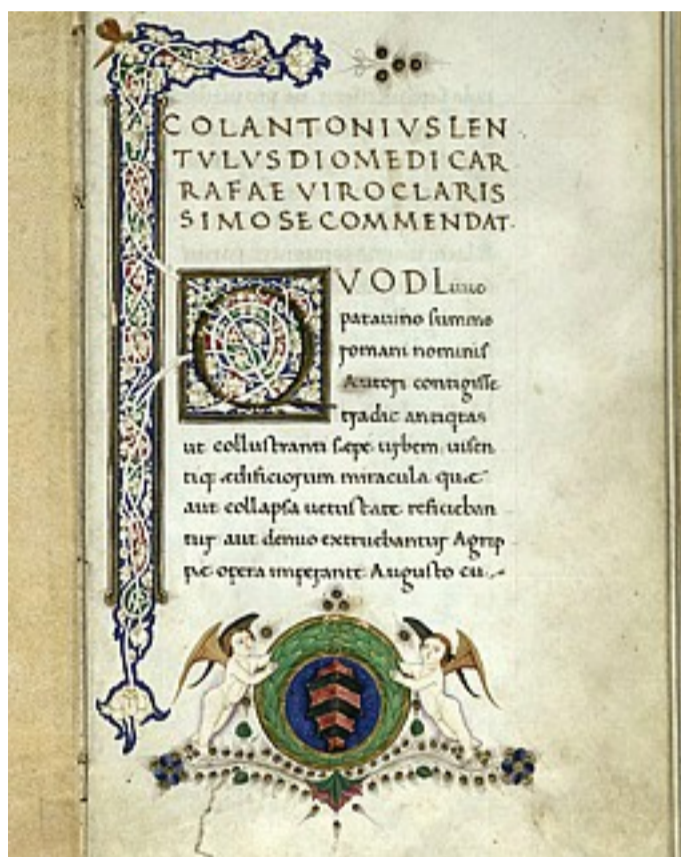 COLANTONIVS LEN
TVLVS DIOMEDI CAR
RAFAE VIRO CLARIS
SIMO SE COMMENDAT.
QVOD Liuio
patauino summo
romani nominis
Autori contigisse
tradit antiqtas
ut collustranti sæpe urbem uisen
tiq ædificiorum miracula quæ
aut collapsa uetustate reficieban
tur aut denuo extruebantur Agrip
pæ opera imperante Augusto